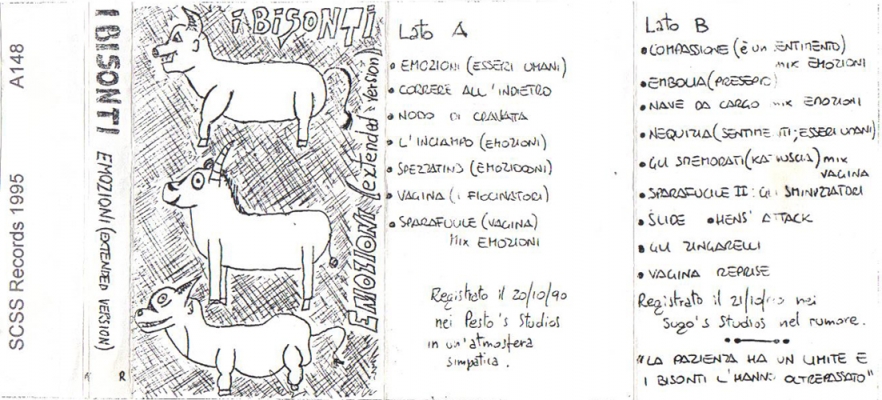 A148
SCSS Records 1995
I BISONTI EMOZIONI (EXTENDED VERSION)
R
i BISONTI
EMOZIONI (extended version)
Lato A
• EMOZIONI (ESSERI UMANI)
• CORRERE ALL'INDIETRO
• NODO DI CRAVATTA
• L'INCIAMPO (EMOZIONI)
• SPEZZATINO (EMOZIOONI)
• VAGINA (I FIOCINATORI)
• SPARAFUCILE (VAGINA)
MIX EMOZIONI
Registrato il 20/10/90
nei Pesto's Studios
in un'atmosfera
simpatica.
Lato B
• COMPASSIONE (È UN SENTIMENTO)
MIX EMOZIONI
• EMBOLIA (PRESEPIO)
• NAVE DA CARGO MIX EMOZIONI
• NEQUIZIA (SENTIMENTI; ESSERI UMANI)
• GLI SMEMORATI (KATIUSCIA) MIX
VAGINA
• SPARAFUCILE II: GLI SMINUZZATORI
• SLIDE HENS' ATTACK
• GLI ZINGARELLI
• VAGINA REPRISE
Registrato il nei
Sugo's Studios nel rumore.
"LA PAZIENZA HA UN LIMITE E
I BISONTI L'HANNO OLTREPASSATO"